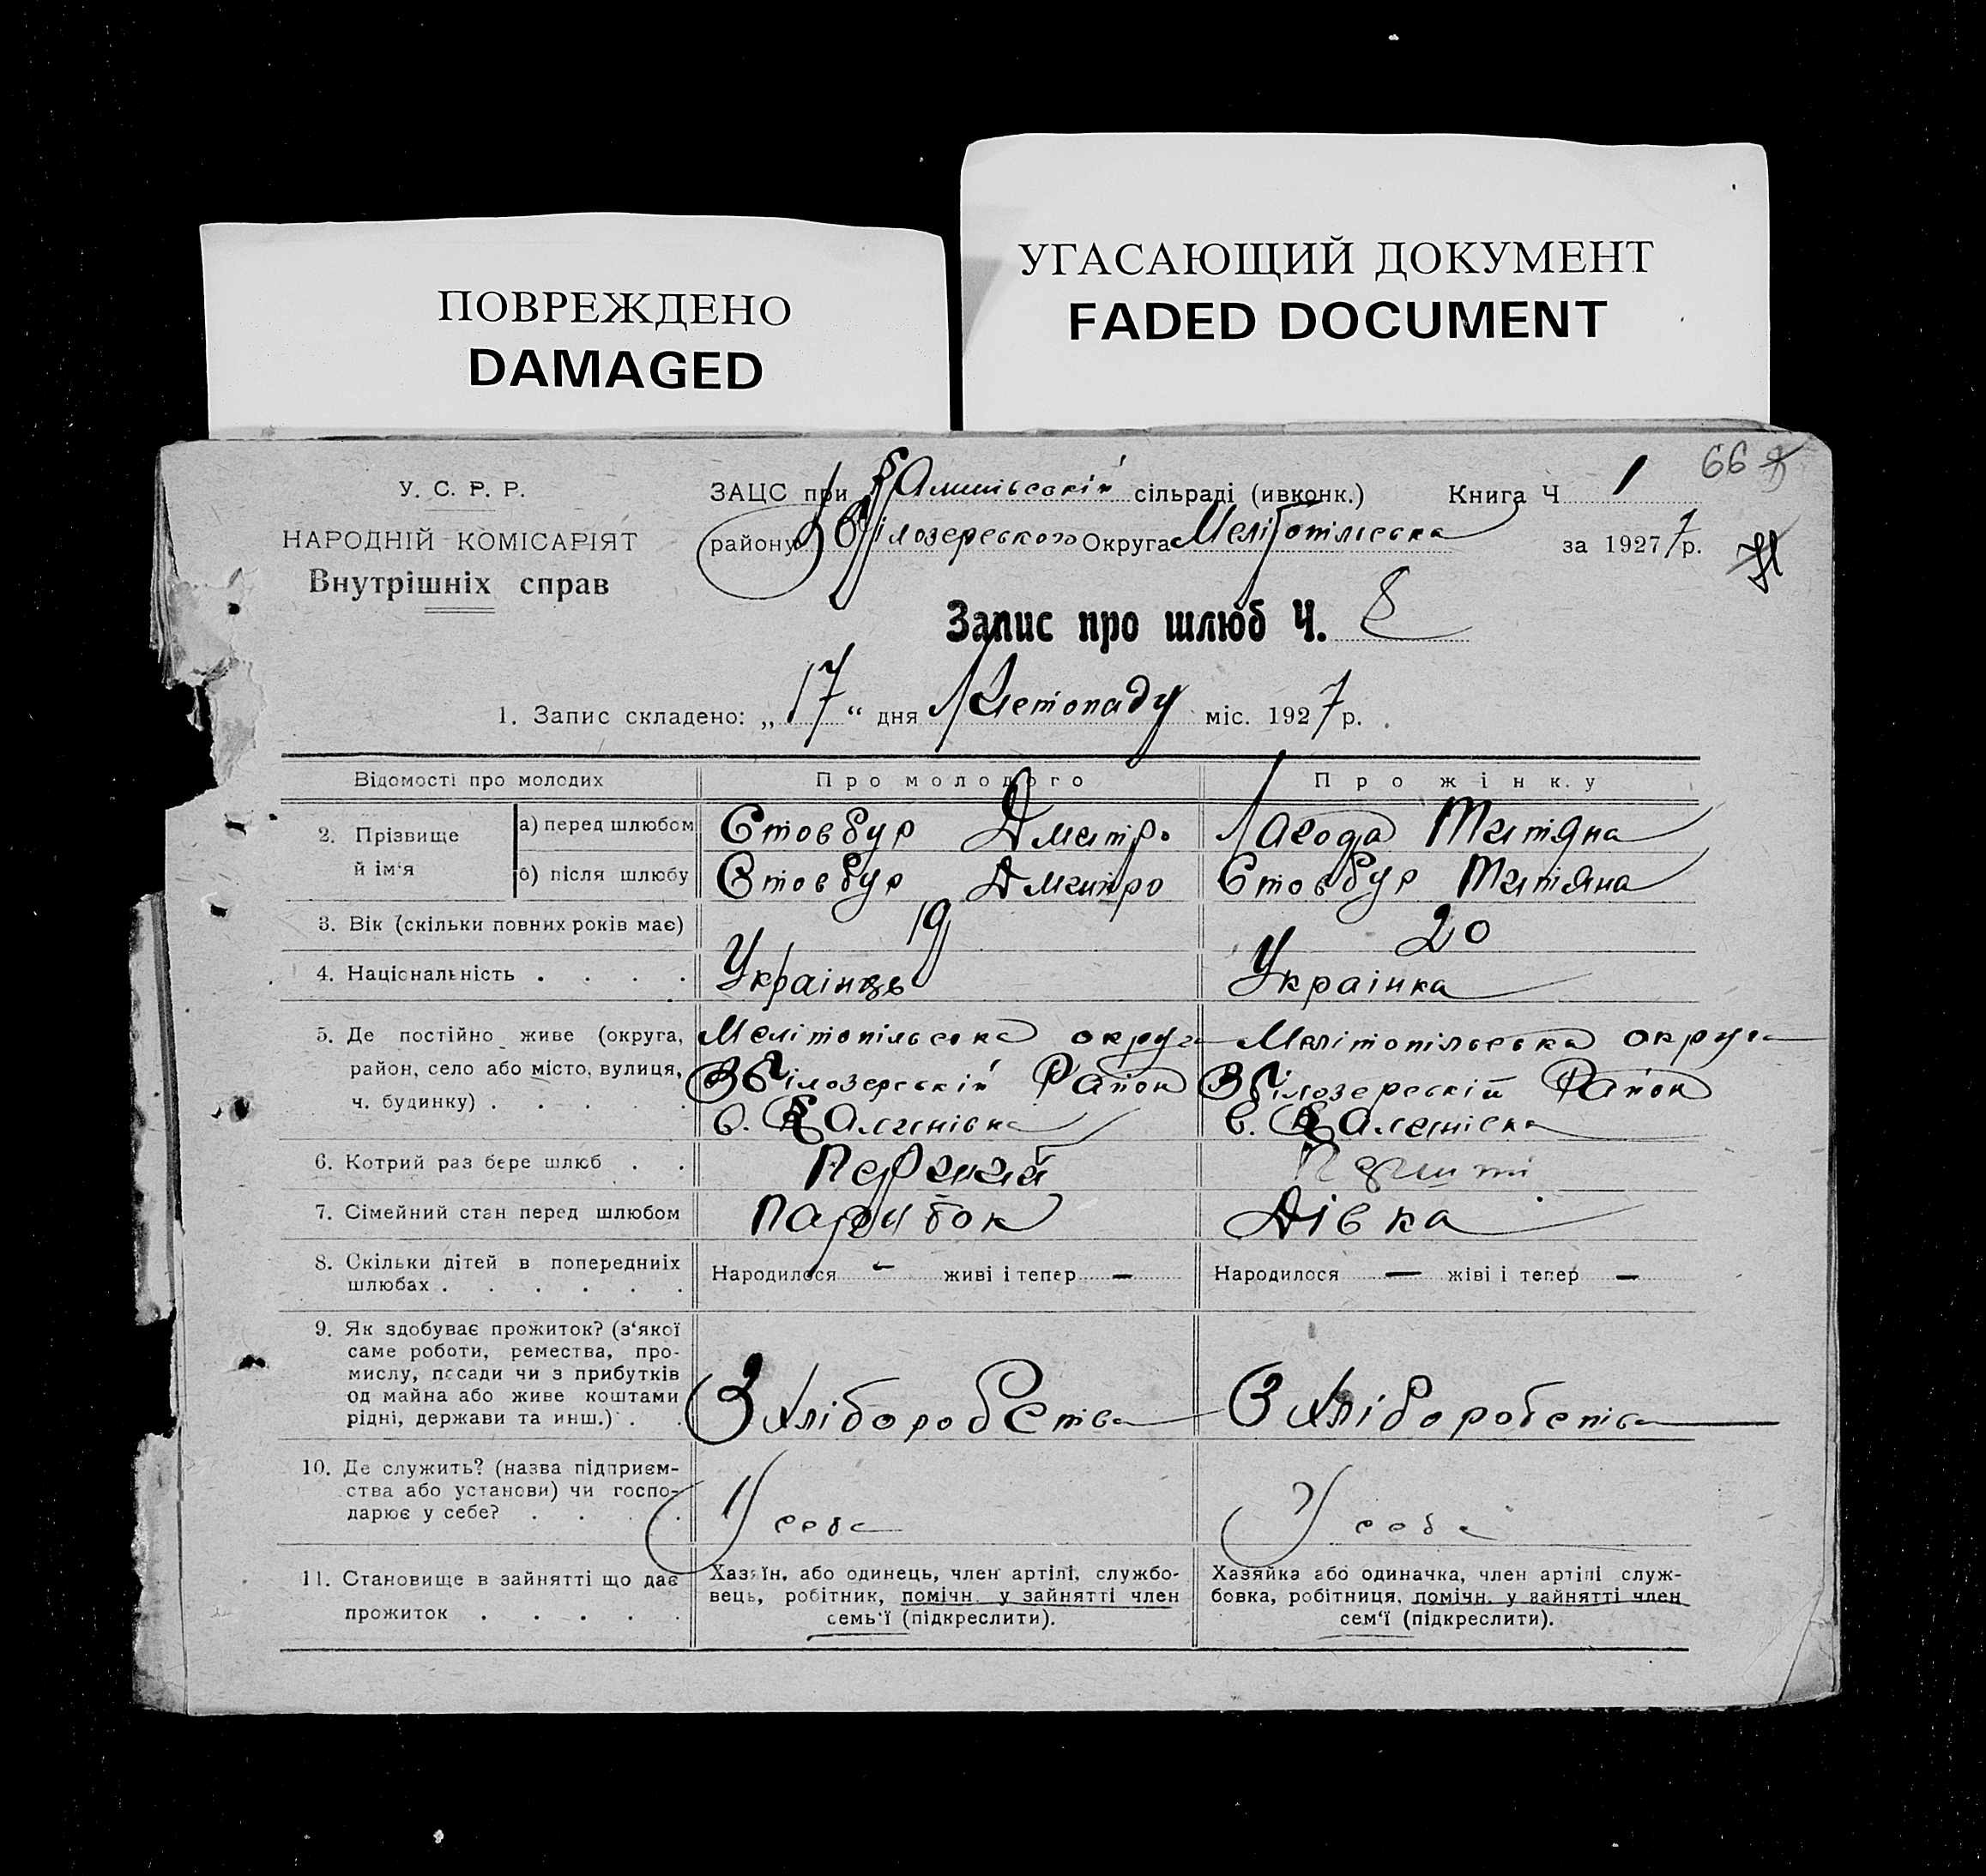 ПОВРЕЖДЕНО
DAMAGED
УГАСАЮЩИЙ ДОКУМЕНТ
FADED DOCUMENT
66
У. С. Р. Р.
НАРОДНІЙ КОМІСАРІЯТ
Внутрішніх справ
ЗАЦС при сільраді (ивконк.) Книга Ч 1
району Округа за 1927 7 р.
Запис про шлюб Ч. 8
1. Запис складено: „17“ дня Листопаду міс. 1927 р.
Відомості про молодих Про молодого Про жінку
2. Прізвище й ім'я
а) перед шлюбом Стовбур Дмитро Лагода Титяна
б) після шлюбу Стовбур Дмитро Стовбур Титяна
3. Вік (скільки повних років має) 19 20
4. Національність . . . . Українць Українка
5. Де постійно живе (округа, Мелітопільська округа Мелітопільська округа
район, село або місто, вулиця, Білозерській Район Білозерській Район
ч. будинку) . . . . . с. с.
6. Котрий раз бере шлюб . . Перший
7. Сімейний стан перед шлюбом Парубок Дівка
8. Скільки дітей в попередніх Народилося - живі і тепер — Народилося — жіві і тепер —
шлюбах . . . . . .
9. Як здобуває прожиток? (з'якої
саме роботи, ремества, про-
мислу, посади чи з прибутків
од майна або живе коштами
рідні, держави та инш.) . . З хліборобства З хліборобства
10. Де служить? (назва підприєм-
ства або установи) чи госпо-
дарює у себе? . . . . У себе У себе
11. Становище в зайнятті що дає
прожиток . . . . .
Хазяїн, або одинець, член артілі, службо-
вець, робітник, помічн. у зайнятті член
семь'ї (підкреслити).
Хазяйка або одиначка, член артілі служ-
бовка, робітниця, помічн. у зайнятті член
сем'ї (підкреслити).